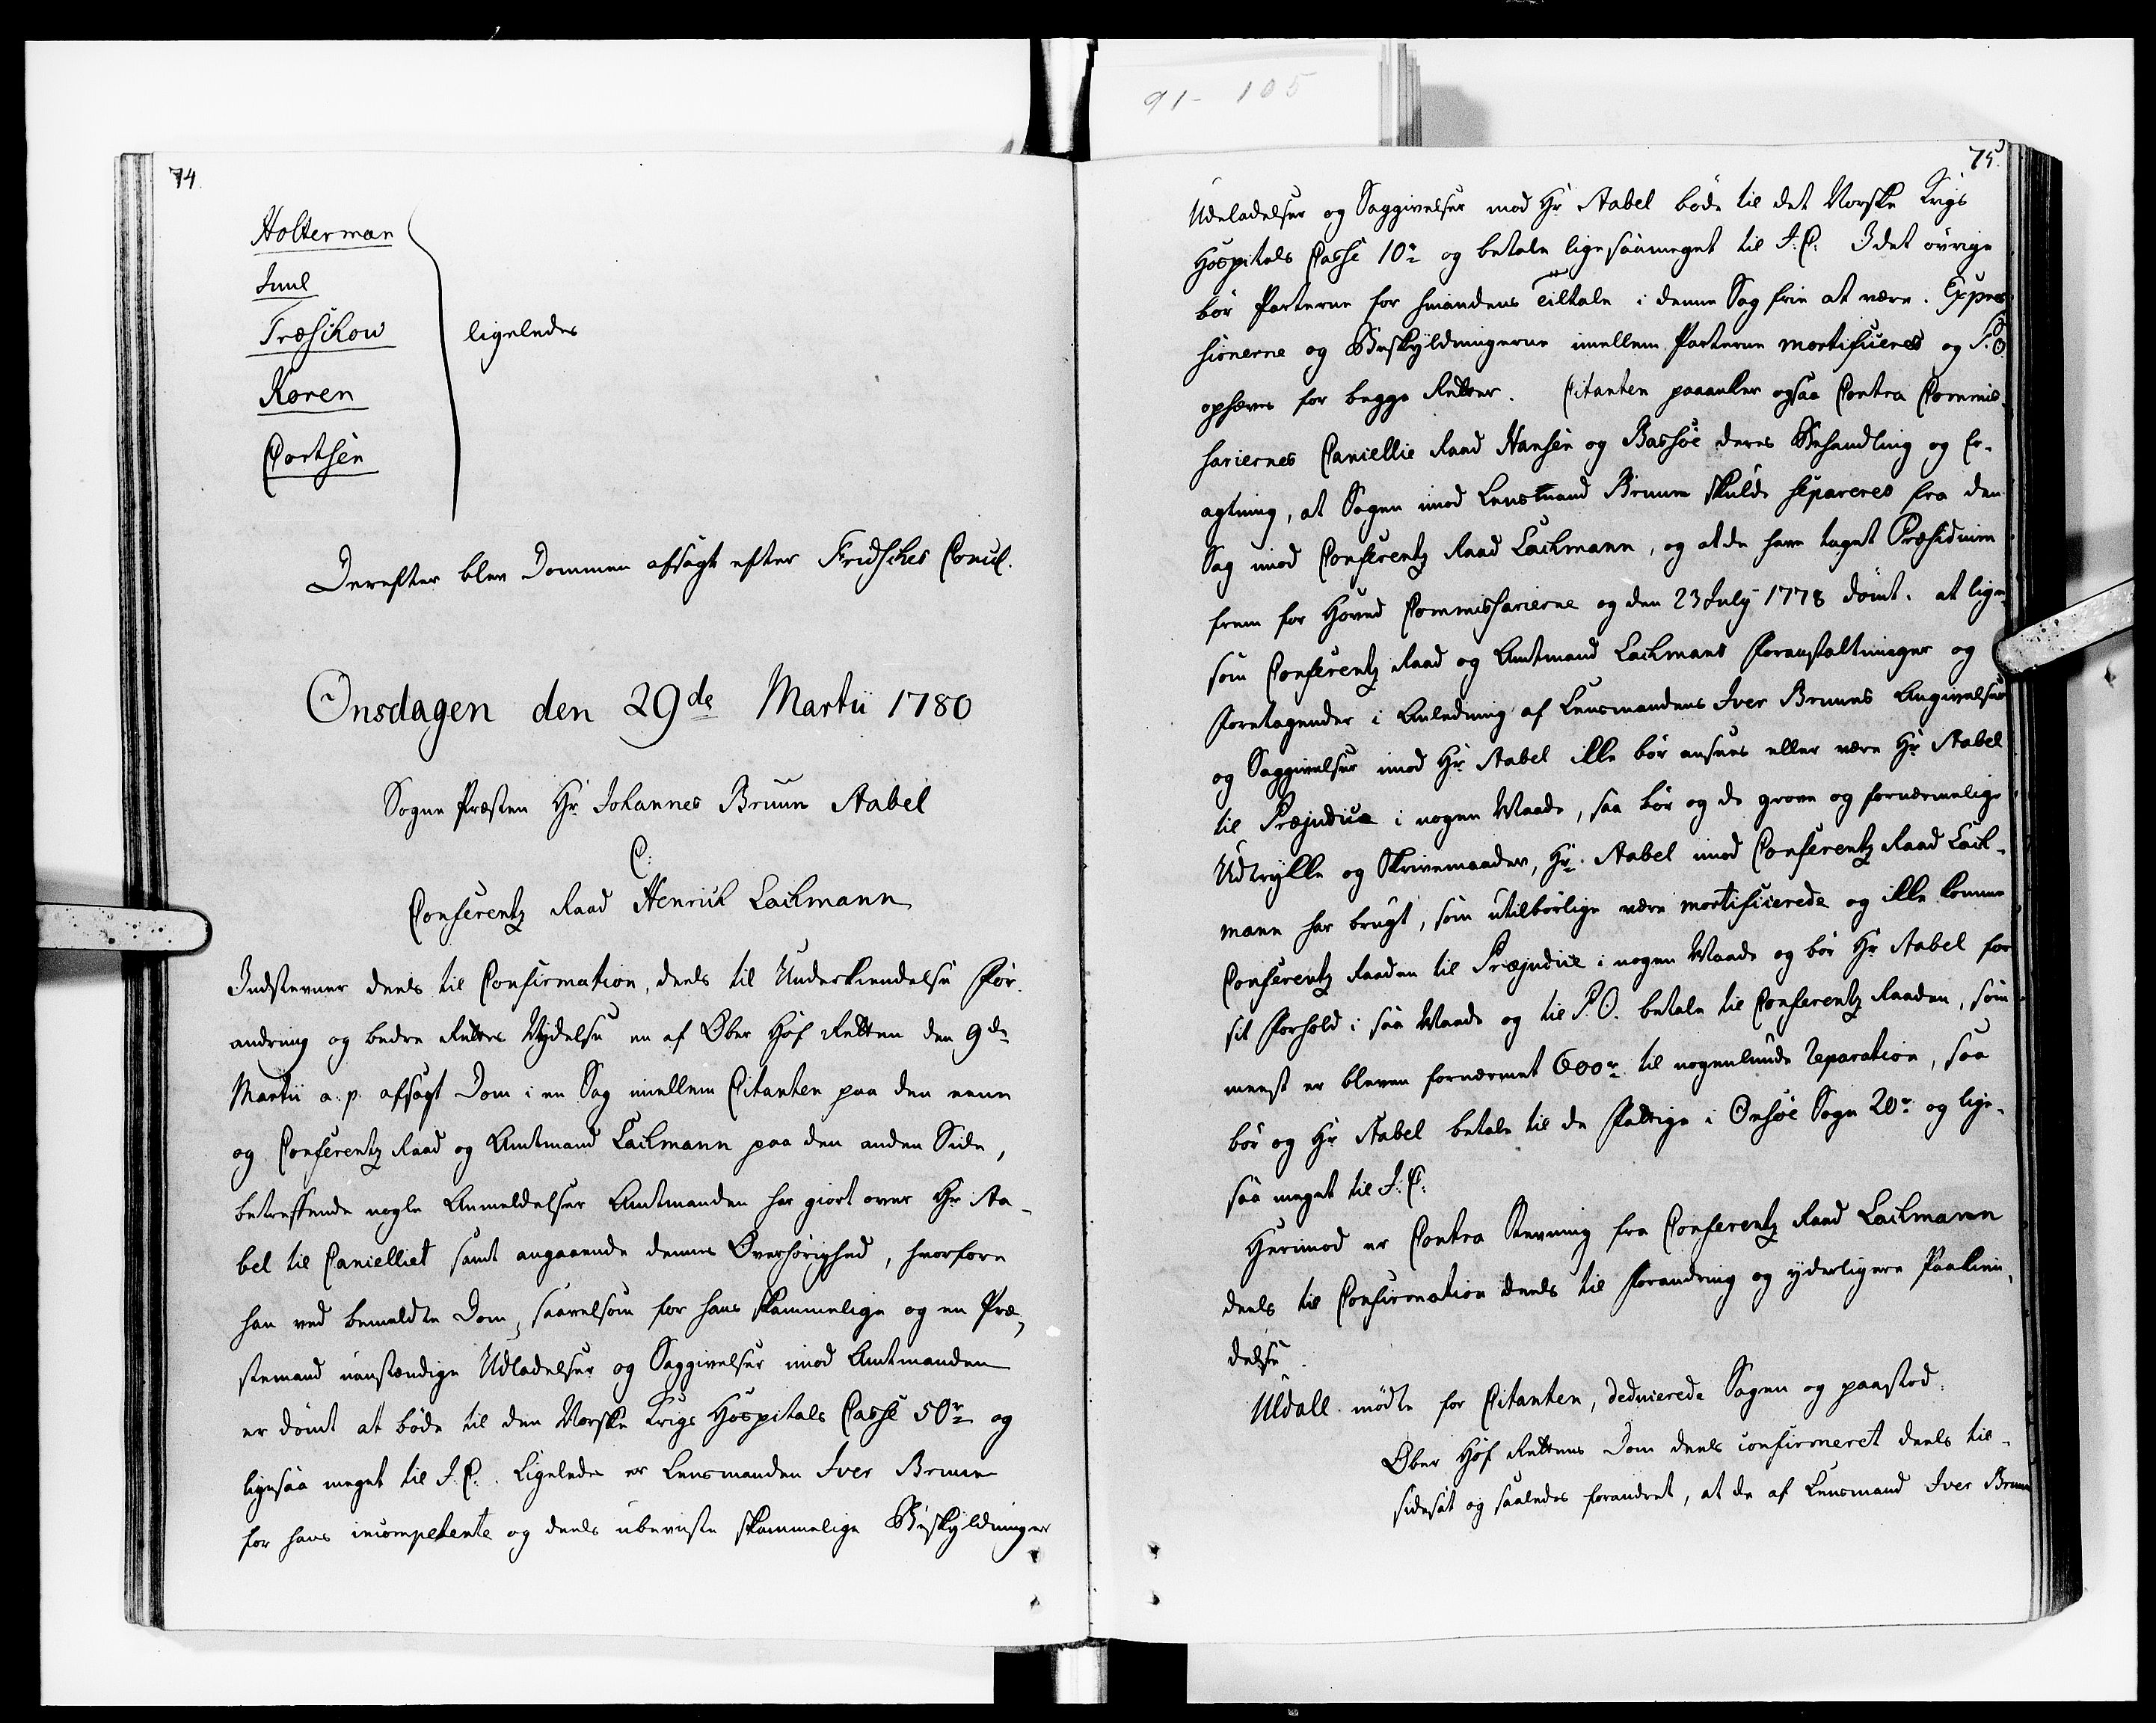 91-105
74.
Holterman
Juul
Træschow
Koren
Cortsen
ligeledes
Derefter blev Dommen afsagt efter Fridsches Concl.
Onsdagen den 29de Martii 1780
Sogne Præsten Hr Johannes Bruun Aabel
C:
Conferentz Raad Henrich Lachmann
Indstevner deels til Confirmation, deels til Underkiendelse For-
andring og bedre Rettes Nydelse en af Ober Hof Retten den 9de
Martii a. p. afsagt Dom i en Sag imellem Citanten paa den eene
og Conferentz Raad og Amtmand Lachmann paa den anden Side,
betreffende nogle Anmeldelser Amtmanden har giort over Hr Aa-
bel til Cancelliet samt angaaende dennes Overhørighed, hvorfore
han ved bemeldte Dom, saavelsom for hans skammelige og en Præ-
stemand uanstændige Udladelser og Saggivelser imod Amtmanden
er dømt at bøde til den Norske Krigs Hospitals Casse 50r og
ligesaa meget til J. C. Ligeledes er Lensmanden Iver Bruun
for hans incompetente og deels ubeviiste skammelige Beskyldninger
75.
Udeladelser og Saggivelser mod Hr Aabel bøde til det Norske Krigs
Hospitals Casse 10r og betale ligesaameget til J. C. I det øvrige
bør Parterne for hinandens Tiltale i denne Sag frie at være. Expres-
sionerne og Beskyldningerne imellem Parterne mortificeres og P. O
ophæves for begge Retter. Citanten paaanker ogsaa Contra Commis-
sariernes Cancellie Raad Hansen og Bassøe deres Behandling og Er-
agtning, at Sagen imod Lensmand Bruun skulde separeres fra den
Sag imod Conferentz Raad Lachmann, og at de have taget Præsidium
frem for Hoved Commissarierne og den 23 July 1778 dømt. at lige-
som Conferentz Raad og Amtmand Lachmans Foranstaltninger og
Foretagender i Anledning af Lensmandens Iver Bruuns Angivelser
og Saggivelser imod Hr Aabel ikke bør ansees eller være Hr Aabel
til Præjudice i nogen Maade, saa bør og de grove og fornærmelige
Udtrykke og Skrivemaader, Hr. Aabel imod Conferentz Raad Lach-
mann har brugt, som utilbørlige være mortificerede og ikke komme
Conferentz Raaden til Præjudice i nogen Maade og bør Hr Aabel for
sit Forhold i saa Maade og til P. O. betale til Conferentz Raaden, som
meest er bleven fornærmet 600r til nogenlunde Reparation, saa
bør og Hr Aabel betale til de Fattige i Onsøe Sogn 20r og lige-
saa meget til J. C.
Herimod er Contra Stevning fra Conferentz Raad Lachmann
deels til Confirmation deels til Forandring og yderligere Paakien-
delse.
Uldall mødte for Citanten, deducerede Sagen og paastod:
Ober Hof Rettens Dom deels confirmeret deels til-
sidesat og saaledes forandret, at de af Lensmand Iver Bruun